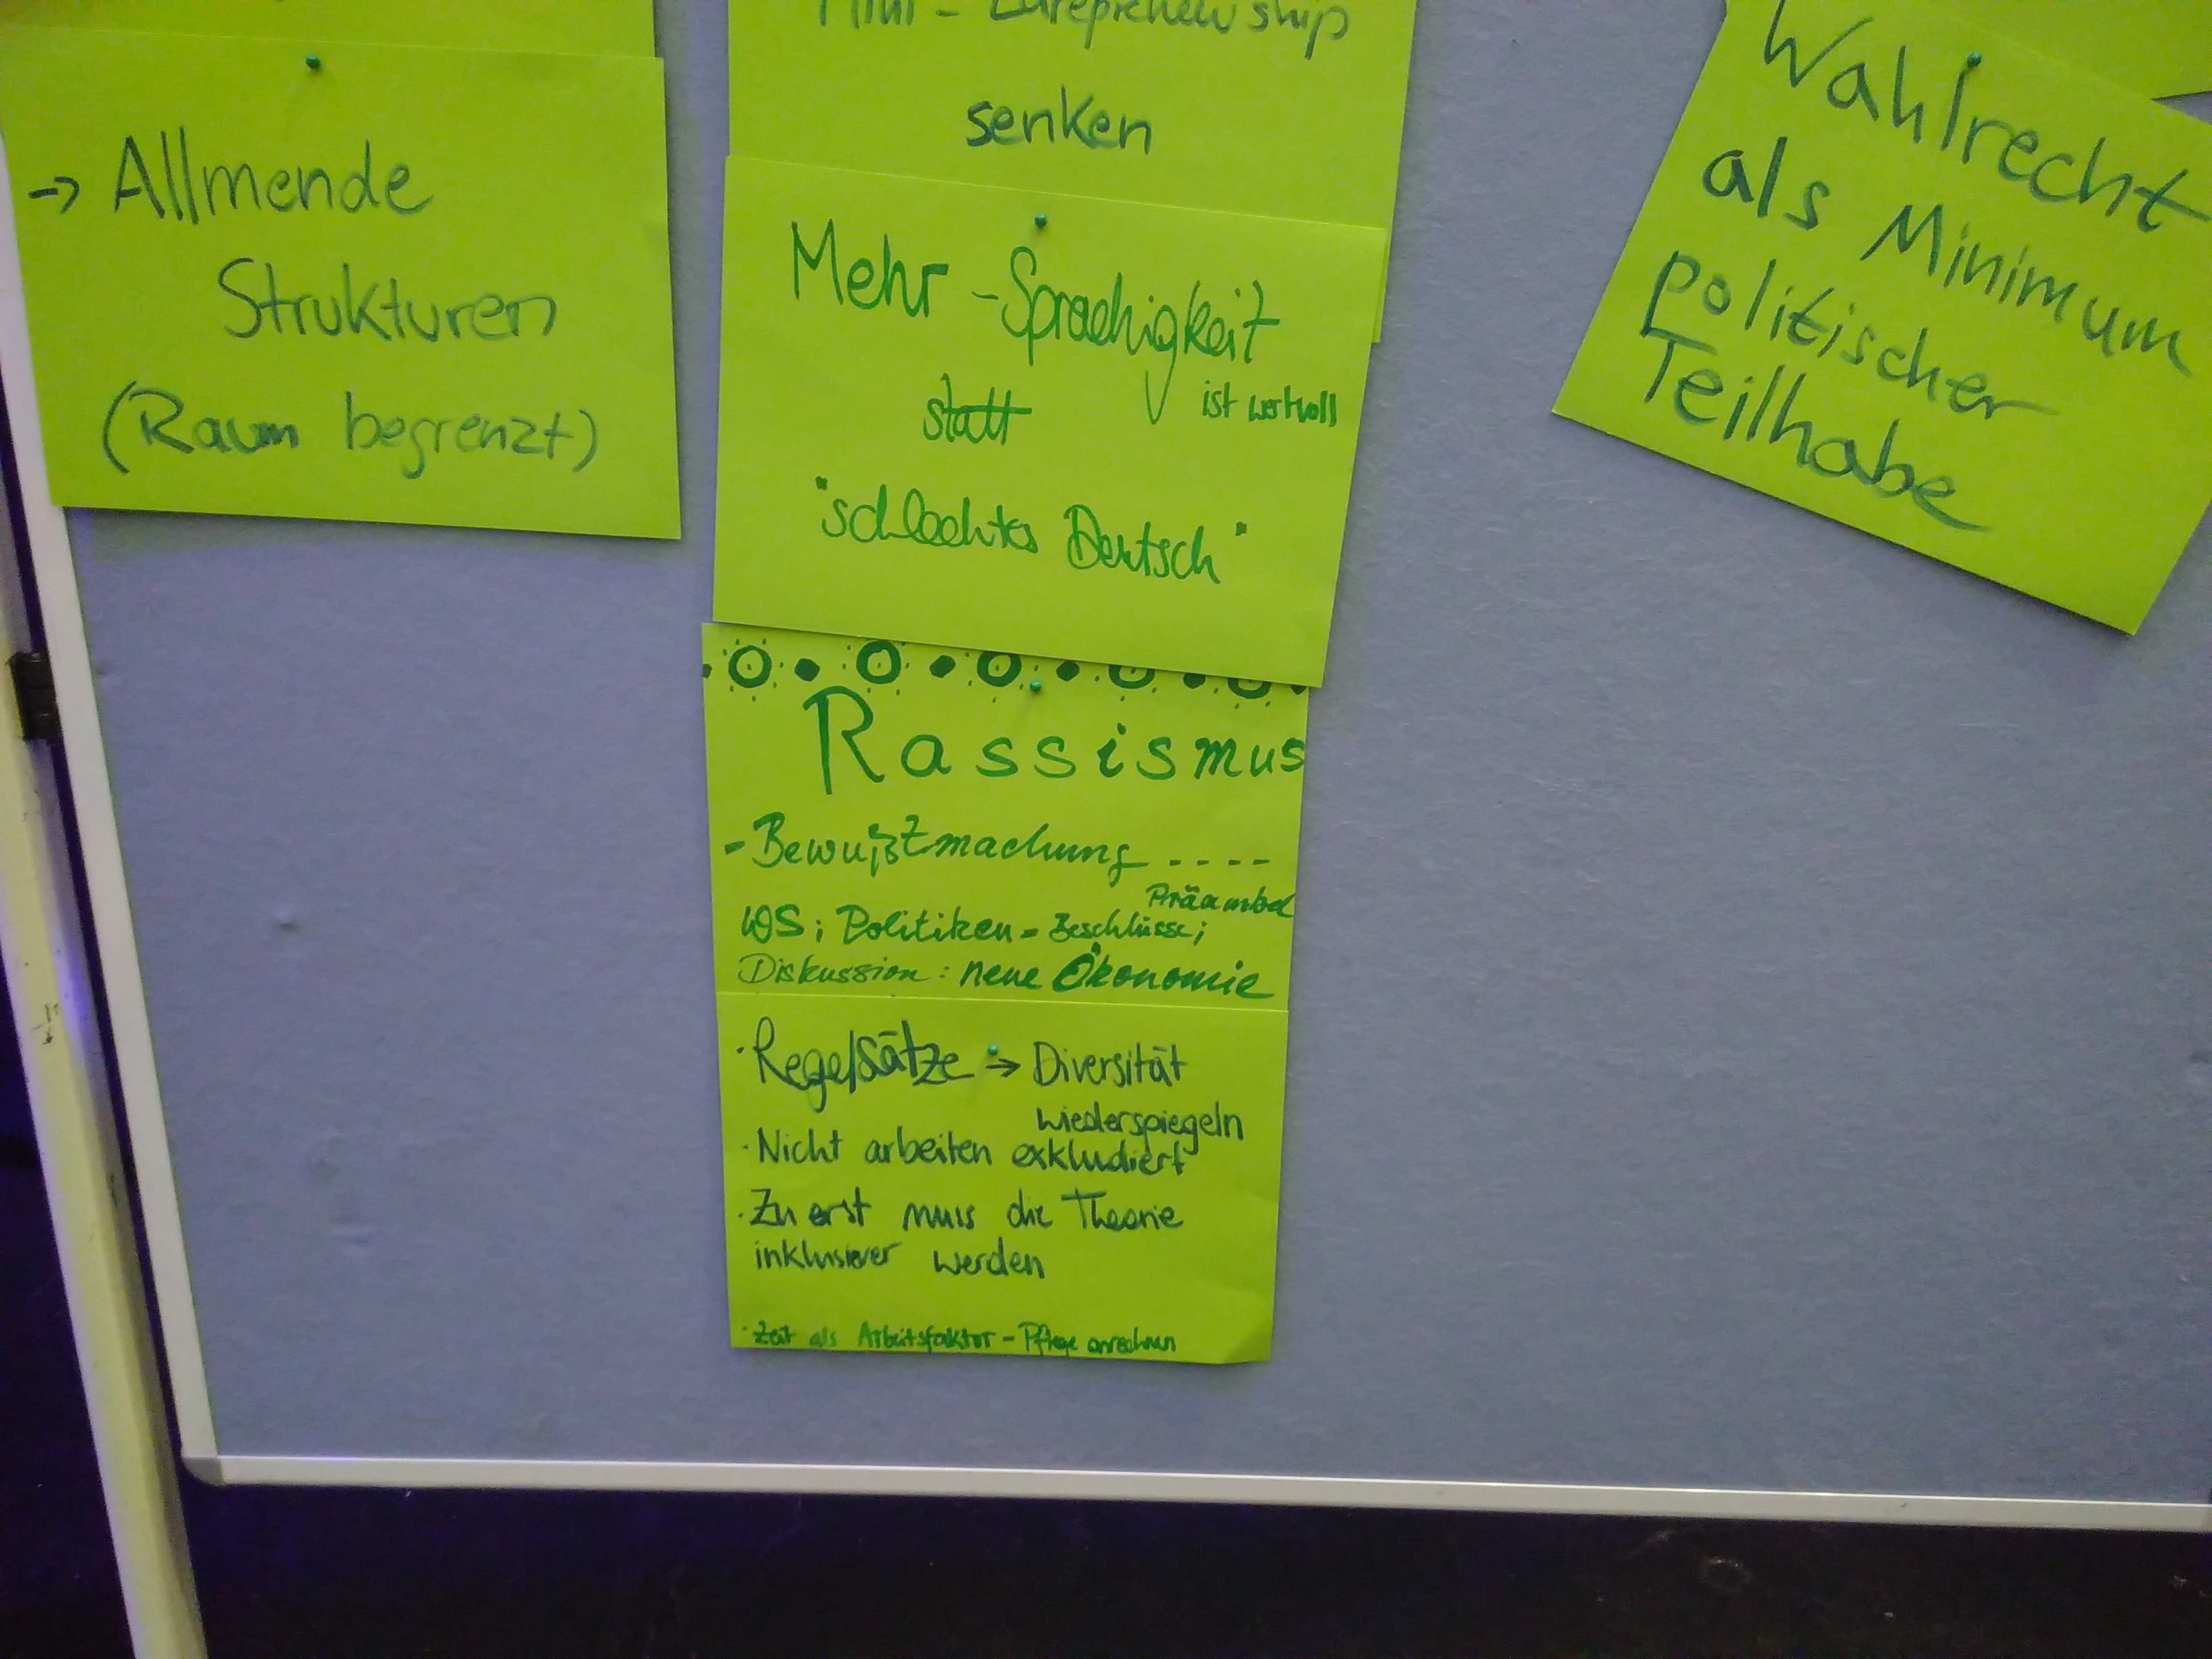 → Allmende
Strukturen
(Raum begrenzt)
senken
Mehr-Sprachigkeit
ist wertvoll
statt
"schlechtes Deutsch"
Rassismus
- Bewußtmachung ----
Präambel
WS; Politiken - Beschlüsse;
Diskussion: neue Ökonomie
· Regelsätze → Diversität
wiederspiegeln
· Nicht arbeiten exkludiert
· Zu erst muss die Theorie
inklusiver werden
· Zeit als Arbeitsfaktor - Pflege anrechnen
Wahlrecht
als Minimum
politischer
Teilhabe